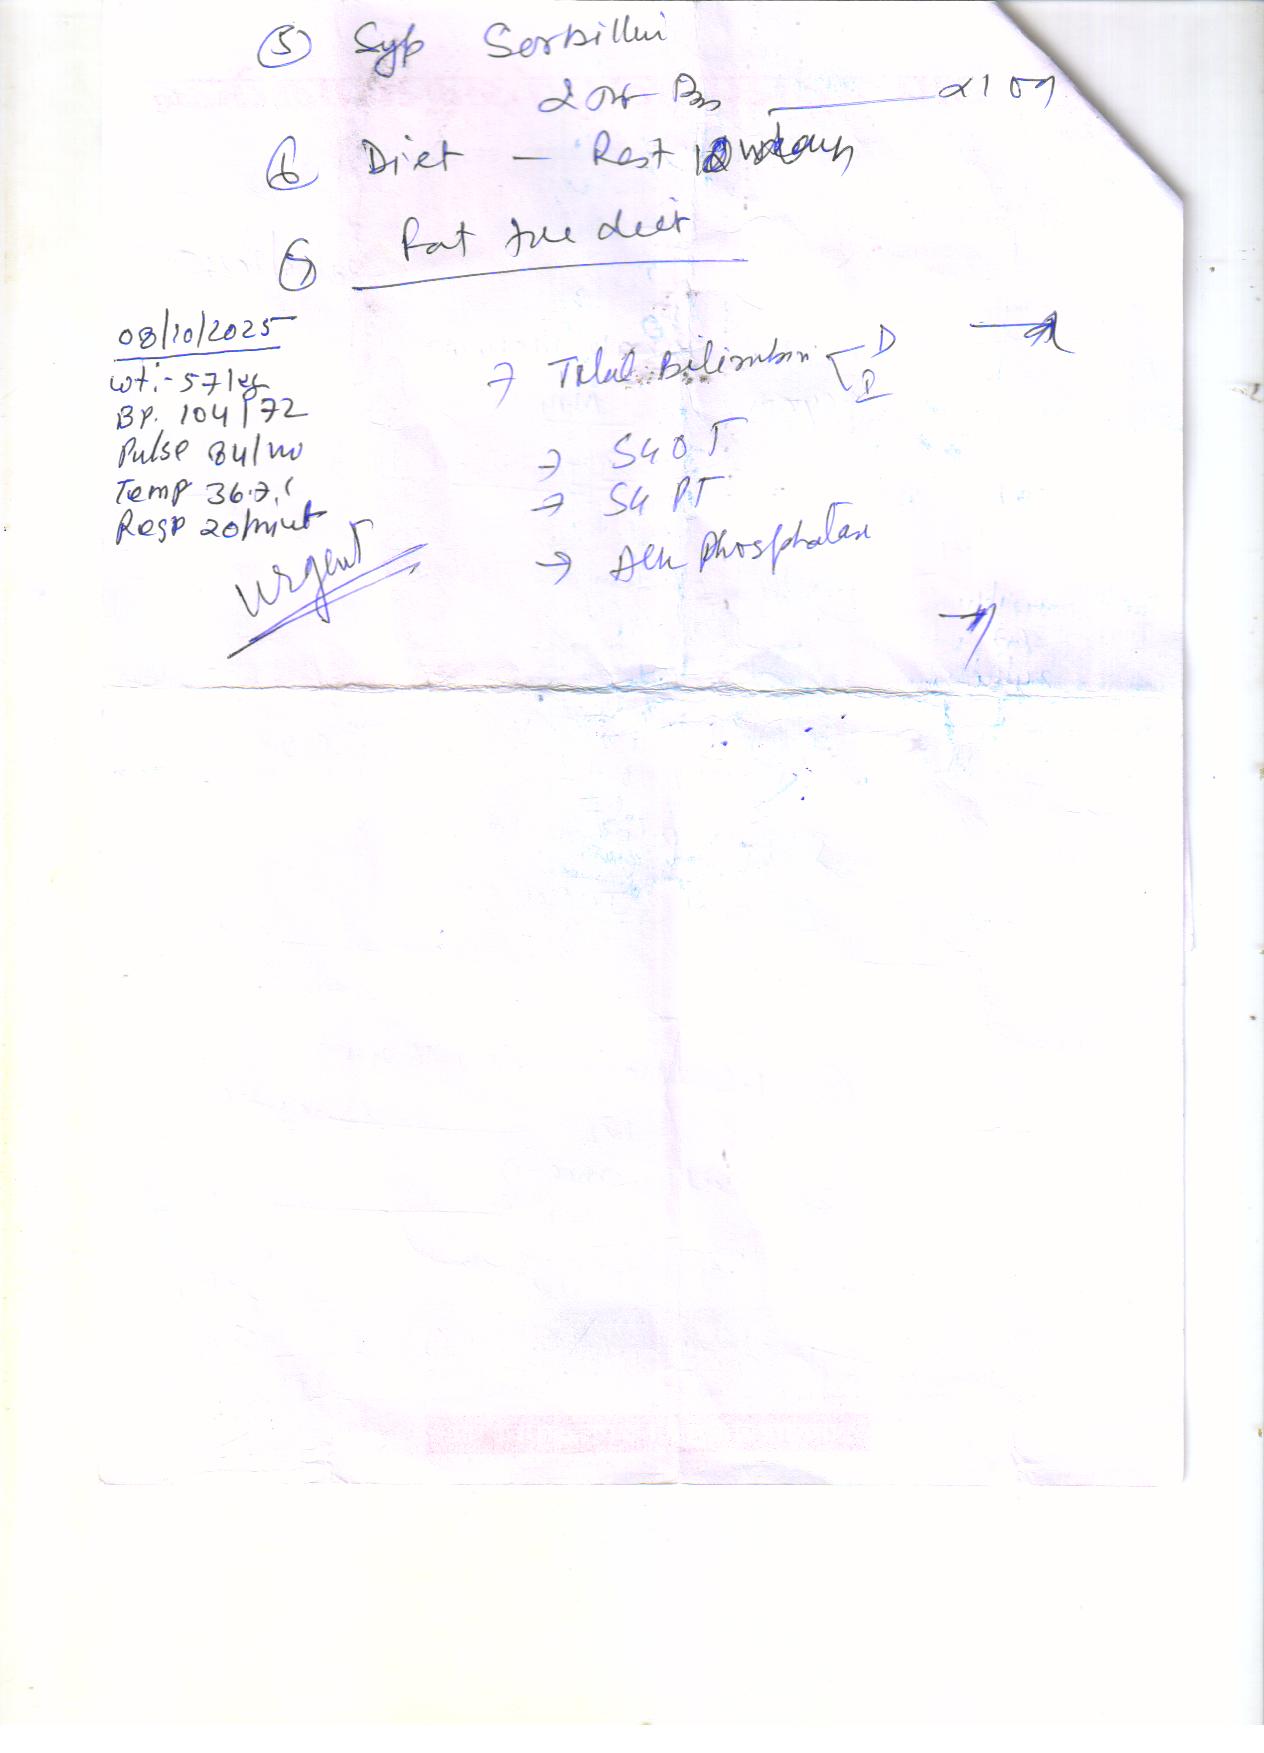 ⑤ Syp Sorbilin
⑥ Diet — Rest
⑦ Fat free diet
08/10/2025
wt:- 57 kg
BP. 104/72
Pulse 84/m
Temp 36.7
Resp 20/minut
Urgent
→ Total Bilirubin D
I
→ SGOT
→ SGPT
→ Alk Phosphatase